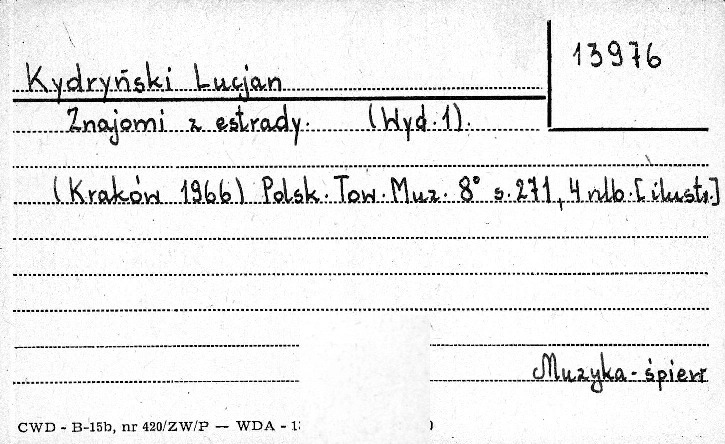 13976
Kydryński Lucjan
Znajomi z estrady. (Wyd. 1).
(Kraków 1966) Polsk. Tow. Muz. 8° s. 271, 4 nlb. [ilustr.]
Muzyka - śpiew
CWD - B-15b, nr 420/ZW/P — WDA - 1